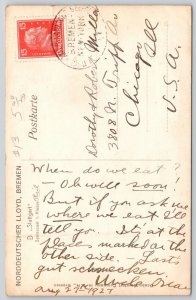 15
Deutsches Reich
15
BREMEN-
NEWYORK
Dorothy & Robert Miller
3808 N. Tripp Av
Chicago
Ill
U.S.A.
Postkarte
NORDDEUTSCHER LLOYD, BREMEN
When do we eat?
— Oh will soon!
But if you ask me
where we eat I'll
tell you. It's at the
places marked on the
other side. Lasts
gut schmecken.
Aug 27th 1927